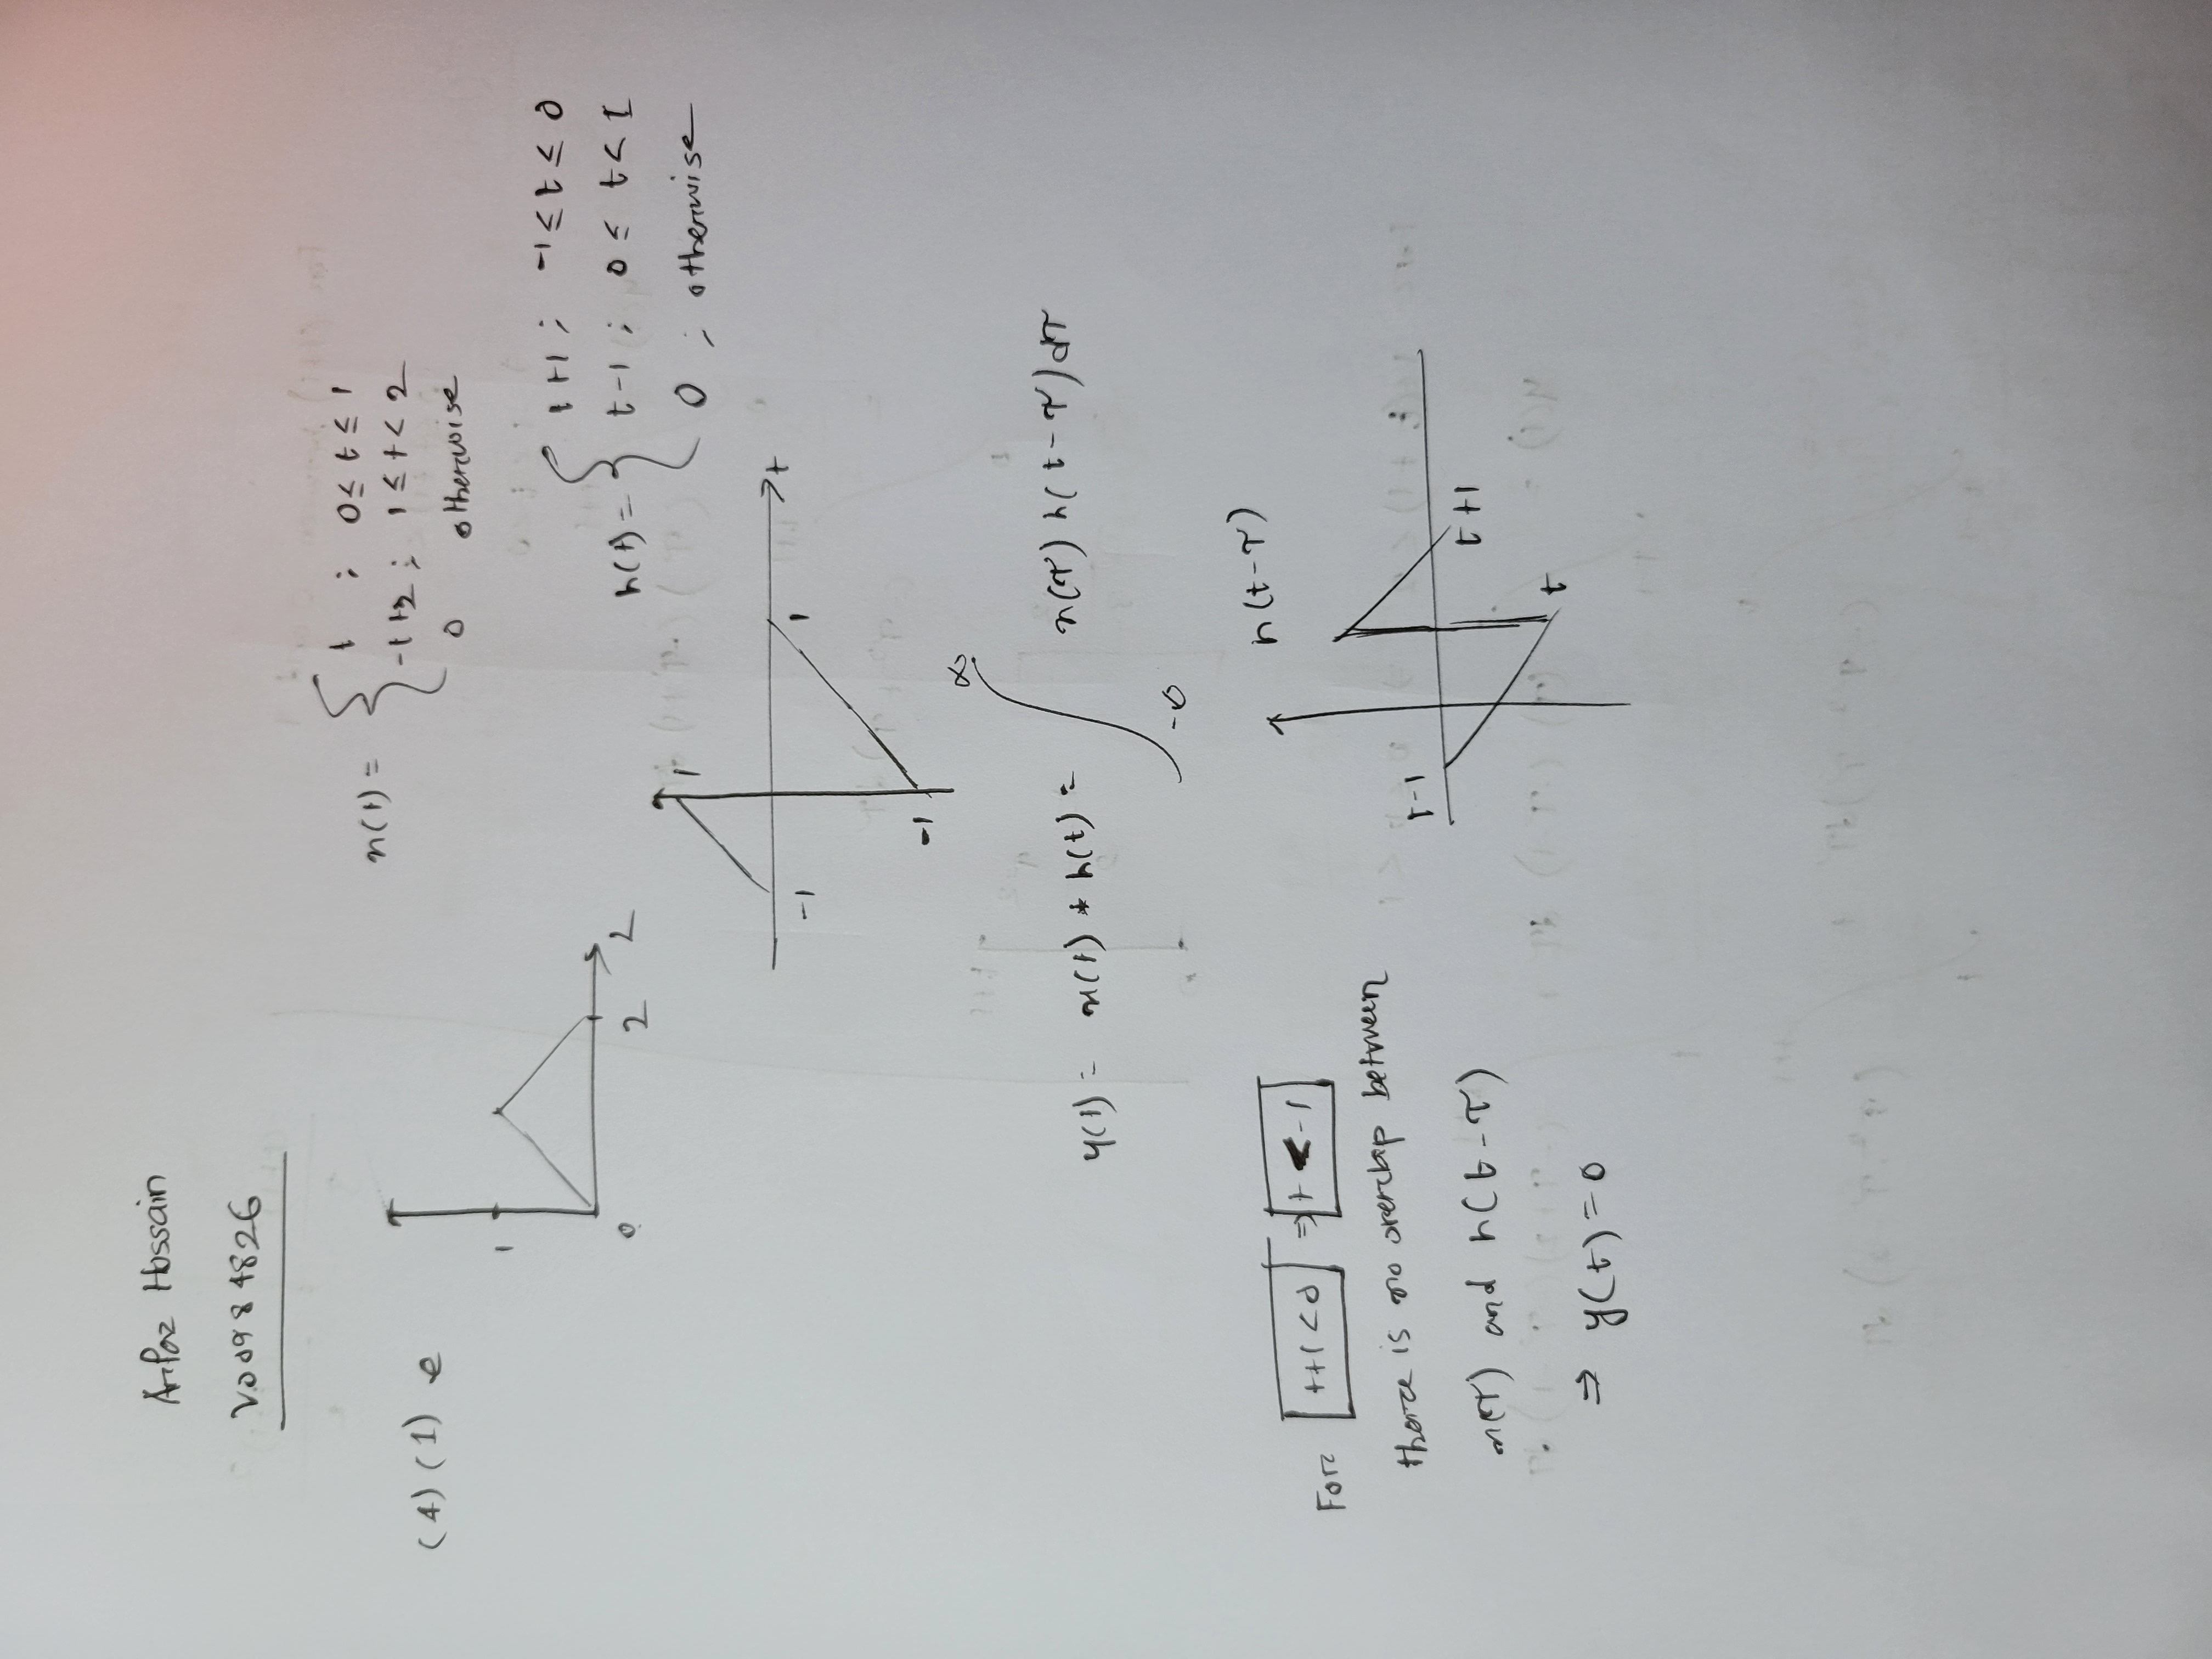 Arfaz Hossain
V00984826
(4) (1) e
1
0
2
2
x(t) = { t ; 0 ≤ t ≤ 1
-t+2 ; 1 ≤ t < 2
0 otherwise
h(t) = { t+1 ; -1 ≤ t ≤ 0
t-1 ; 0 ≤ t < 1
0 ; otherwise
1
-1
1
t
-1
y(t) = x(t) * h(t) = ∫_{-∞}^{∞} x(τ) h(t-τ) dτ
For t+1 < 0 ⇒ t < -1
there is no overlap between
x(τ) and h(t-τ)
⇒ y(t) = 0
h(t-τ)
t-1
t+1
t